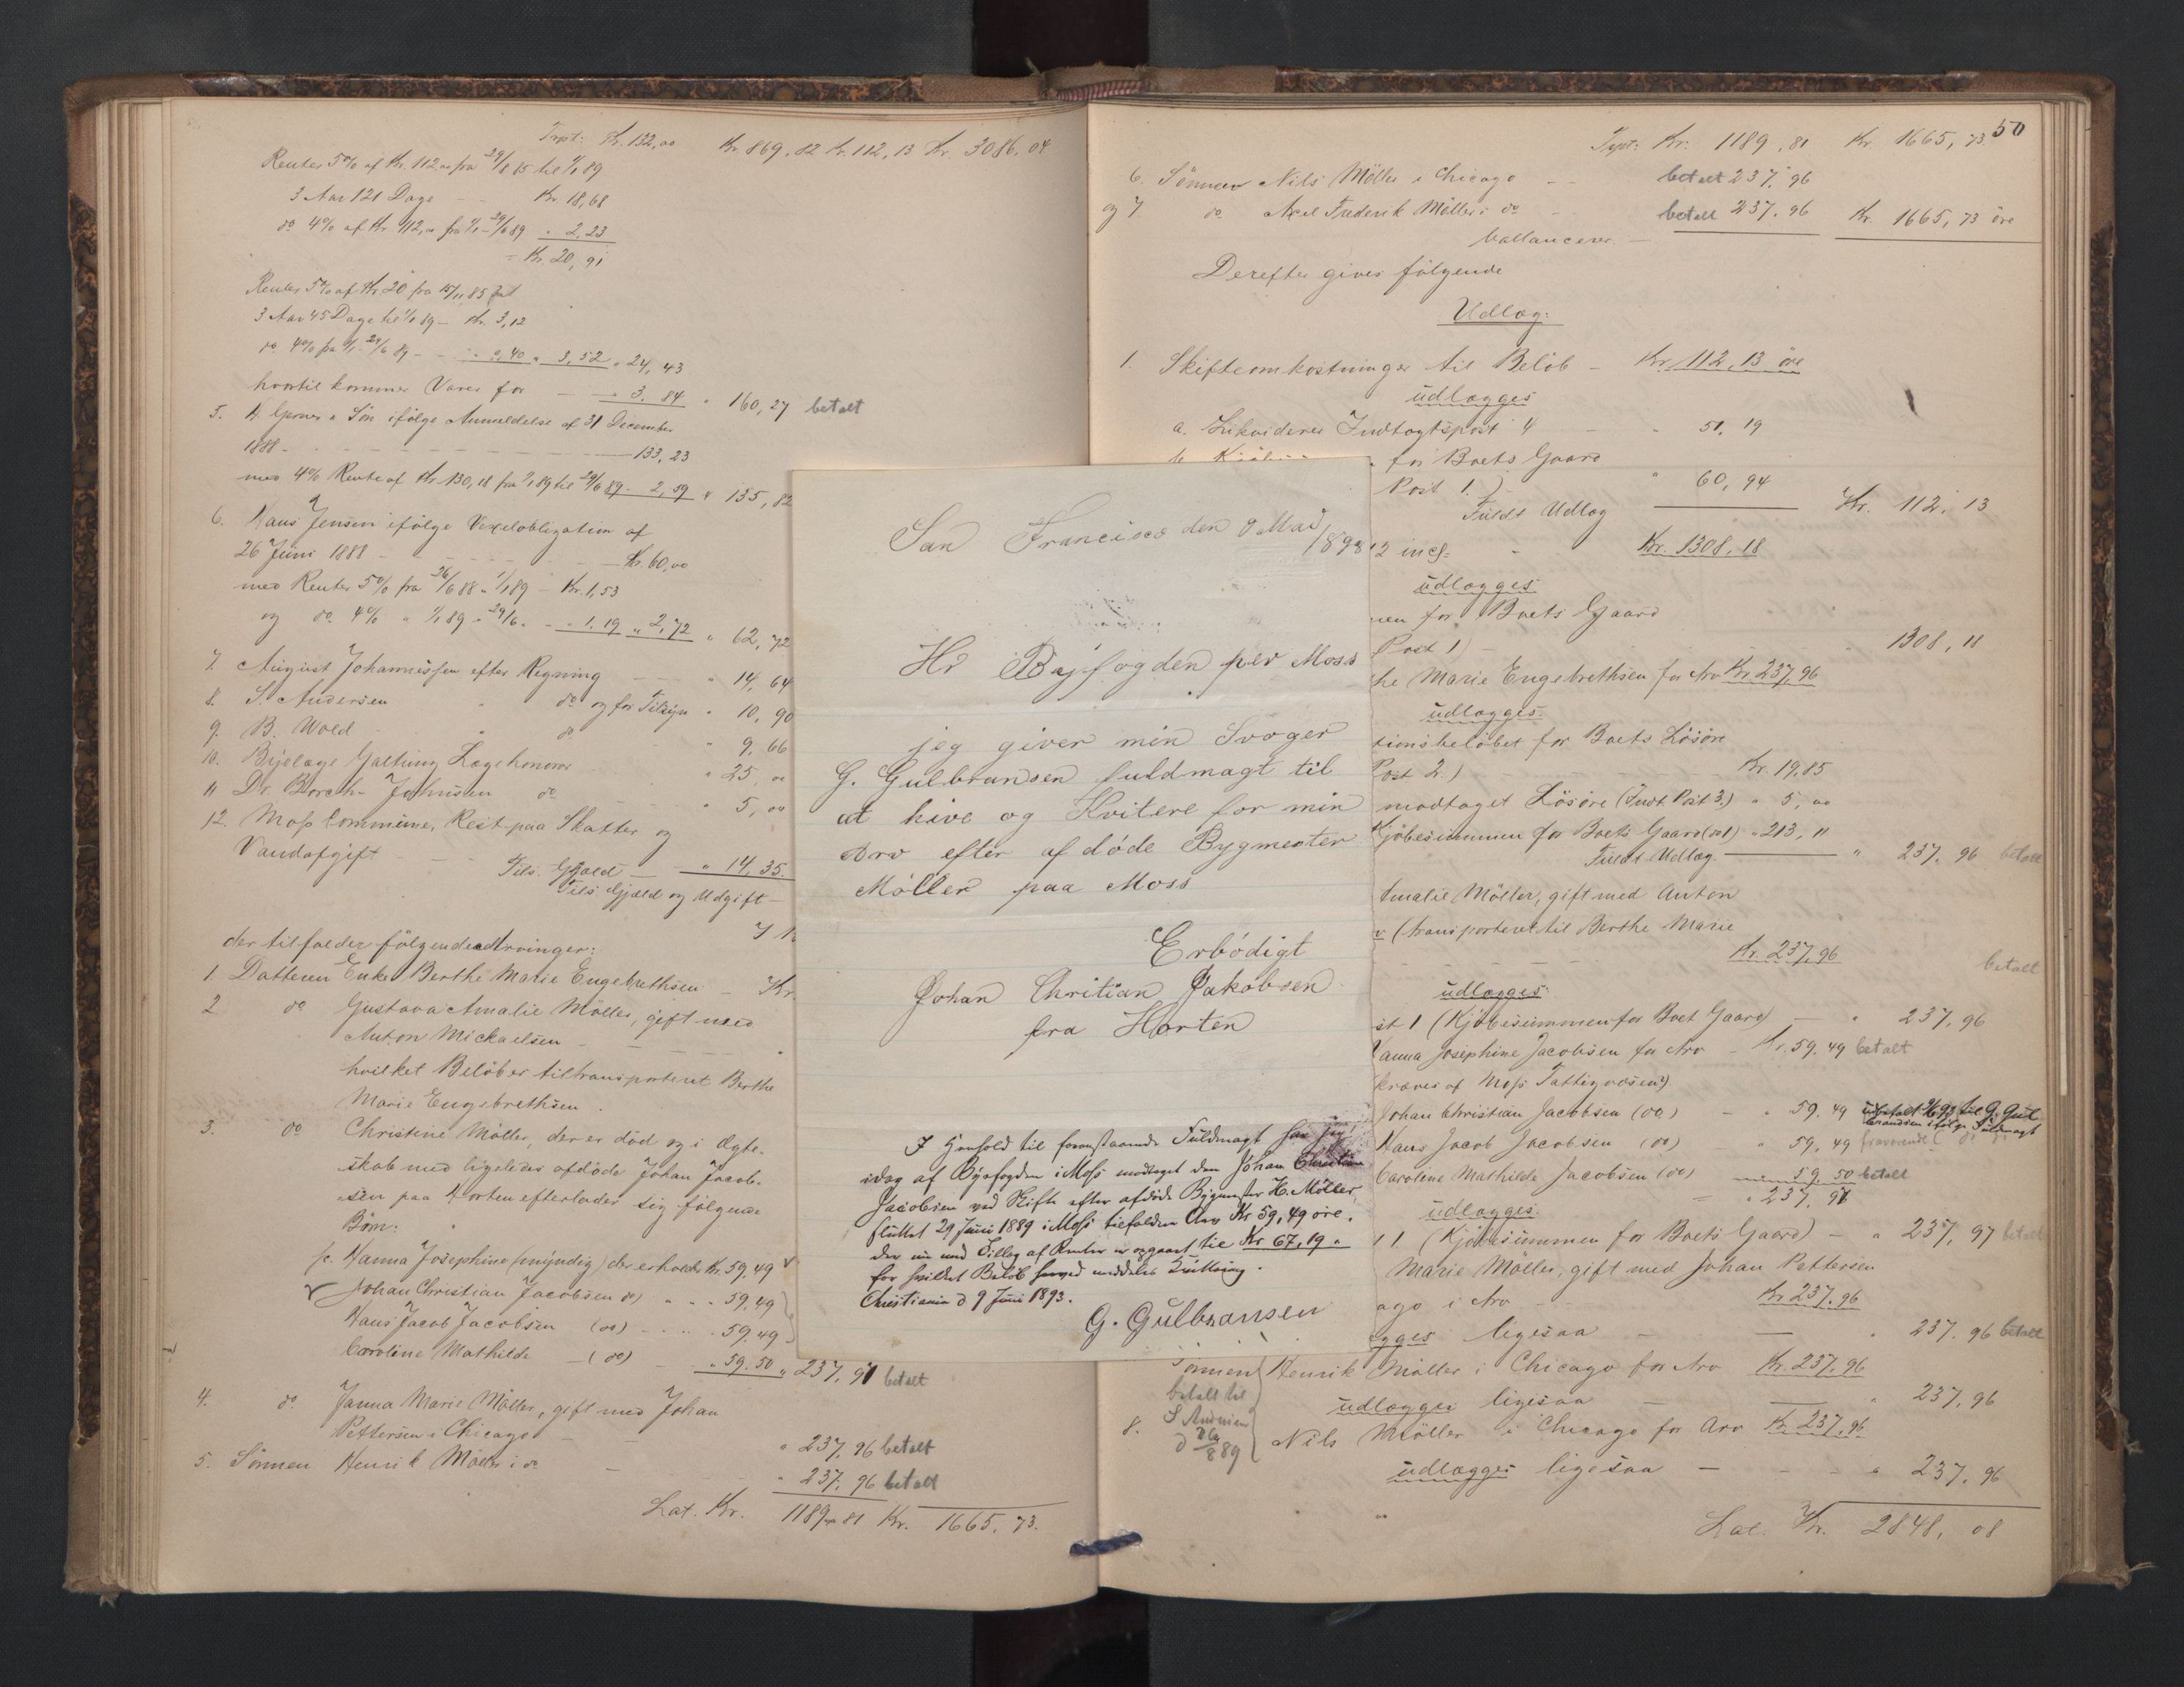 Trpt: Kr. 132,00 Kr. 869,82 Kr. 112,13 Kr. 3086,04
Renter 5% af Kr. 112,00 fra 29/8 85 til 1/1 89
3 Aar 121 Dage - - Kr. 18,68
do 4% af Kr. 112,00 fra 1/1 - 29/6 89 " 2,23
= Kr. 20,91
Renter 5% af Kr. 20 fra 15/11 85
3 Aar 45 Dage til 1/1 89 - Kr. 3,12
do 4% fra 1/1 29/6 89 - - " 0,40 " 3,52 " 24,43
hvortil kommer Varer for - " 3,84 " 160,27 betalt
5. & Søn ifølge Anmeldelse af 31 December
1888 - 133,23
med 4% Rente af Kr. 130,18 fra 1/1 89 til 29/6 89 - 2,59 " 135,82
6. Hans Jensen ifølge Vexelobligation af
26 Juni 1888 - Kr. 60,00
med Renter 5% fra 26/6 88 - 1/1 89 - Kr. 1,53
og do 4% " 1/1 89 - 29/6 " - " 1,19 " 2,72 " 62,72
7. August Johannissen efter Regning - " 14,64
8. S. Andersen " do og for Tilsyn " 10,90
9. B. Wold " do " 9,66
10. Bylæge Gjeltung Lægehonorar " 25,00
11 Dr. Borch-Johnsen do - " 5,00
12. Moss Commune, Rest paa Skatter og
Vandafgift - " 14,35
Tils. Gjæld
Tils Gjæld og Udgift -
der tilfalder følgende Arvinger:
1. Datteren Enke Berthe Marie Engebrethsen - Kr.
2. do Gustava Amalie Möller, gift med
Anton Mickaelsen -
hvilket Beløb er tiltransporteret Berthe
Marie Engebrethsen.
3. do Christine Möller, der er død og i Ægte-
skab med ligeledes afdøde Johan Jacob-
sen paa Horten efterlader sig følgende
Börn:
Hanna Josephine (myndig) der erholder Kr. 59,49
Johan Christian Jacobsen do) " - - 59,49
Hans Jacob Jacobsen (do) - - 59,49
Caroline Mathilde - (do) - " 59.50 " 237,97 betalt
4. do Janna Marie Möller, gift med Johan
Pettersen i Chicago - " 237,96 betalt
5. Sönnen Henrik Möller i do - " 237,96 betalt
Lat. Kr. 1189,81 Kr. 1665,73.
San Francisco den 9 Mai
1893
Hr Byfogden ved Moss
jeg giver min Svoger
G. Gulbransen fuldmagt til
at hive og Kvitere for min
Arv efter afdøde Bygmester
Möller paa Moss
Erbödigt
Johan Chritian Jakobsen
fra Horten
I Henhold til foranstaaende Fuldmagt har jeg
idag af Byefogden i Moss modtaget den Johan Christian
Jacobsen ved Skifte efter afdøde Bygmester H. Möller,
sluttet 29 Juni 1889 i Moss tilfaldne Arv Kr 59,49 øre,
der nu med Tillæg af Renter er opgaaet til Kr 67,19 "
for hvilket Beløb herved meddeles Kvittering.
Christiania d 9 Juni 1893.
G. Gulbransen
50
Trpt: Kr. 1189,81 Kr. 1665,73
6. Sönnen Nils Möller i Chicago - - betalt 237,96
og 7 do Axel Frederik Möller i do - betalt 237,96 Kr. 1665,73 öre
ballancerer. -
Derefter gives følgende
Udlæg:
1. Skifteomkostninger til Beløb - Kr. 112,13 öre
udlægges
a. Likviderer Indtægtspost 4 - " 51,19
b. for Boets Gaard
Post 1.) " 60,94
Fuldt Udlæg Kr. 112,13
12 incl: - Kr. 1308,18
udlægges
en for Boets Gaard
Post 1) - 1308,11
he Marie Engebrethsen for Arv Kr. 237,96
udlægges:
tionsbeløbet for Boets Lösöre
Post 2.) - Kr. 19,85
modtaget Lösöre (Indt. Post 3.) " 5,00
Kjöbesummen for Boets Gaard (do 1) " 213,11
Fuldt Udlæg " 237,96 betalt
Amalie Möller, gift med Anton
(transporteret til Berthe Marie
Kr. 237,96 betalt
udlægges:
st 1 (Kjöbesummen for Boet Gaard) - " 237,96
Hanna Josephine Jacobsen for Arv - Kr. 59,49 betalt
(kræves af Moss Fattigvæsen)
Johan Christian Jacobsen (do) - " 59,49 udbetalt 9/6 93 til G. Gul
brandsen ifølge Fuldmagt
Hans Jacob Jacobsen (do) " 59,49 fraværende
Caroline Mathilde Jacobsen (do) 59.50 betalt
" 237,97
udlægges:
1 (Kjöbesummen for Boets Gaard) - " 237,97 betalt
Marie Möller, gift med Johan Pettersen
ago i Arv - Kr 237,96
gges ligesaa - " 237,96 betalt
Sönnen Henrik Möller i Chicago for Arv Kr. 237,96
betalt til
S Andersen
d 26/8 89
udlægges ligesaa - " 237,96
8. Nils Möller i Chicago for Arv Kr. 237,96
udlægges ligesaa - " 237,96
Lat. Kr. 2848,08